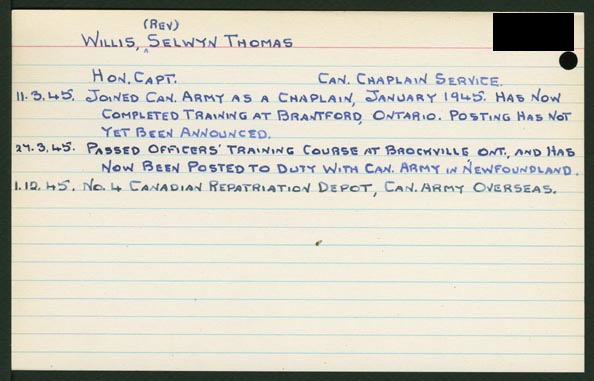 (REV)
WILLIS, ^ SELWYN THOMAS
HON. CAPT. CAN. CHAPLAIN SERVICE.
11.3.45. JOINED CAN. ARMY AS A CHAPLAIN, JANUARY 1945. HAS NOW
COMPLETED TRAINING AT BRANTFORD, ONTARIO. POSTING HAS NOT
YET BEEN ANNOUNCED.
27.3.45. PASSED OFFICERS' TRAINING COURSE AT BROCKVILLE ONT., AND HAS
NOW BEEN POSTED TO DUTY WITH CAN. ARMY IN NEWFOUNDLAND.
1.12.45. NO. 4 CANADIAN REPATRIATION DEPOT, CAN. ARMY OVERSEAS.